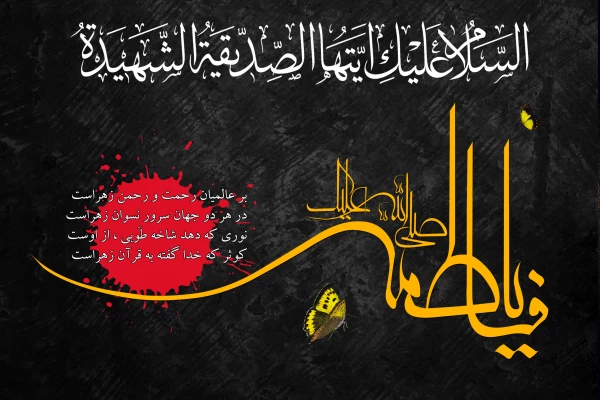 السَّلامُ عَلَيْكِ اَيَّتُهَا الصِّدّيقَةُ الشَّهيدَةُ
صلی الله علیک
یا فاطمة
بر عالمیان رحمت و رحمن زهراست
در هر دو جهان سرور نسوان زهراست
نوری که دهد شاخه طوبی ، از اوست
کوثر که خدا گفته به قرآن زهراست